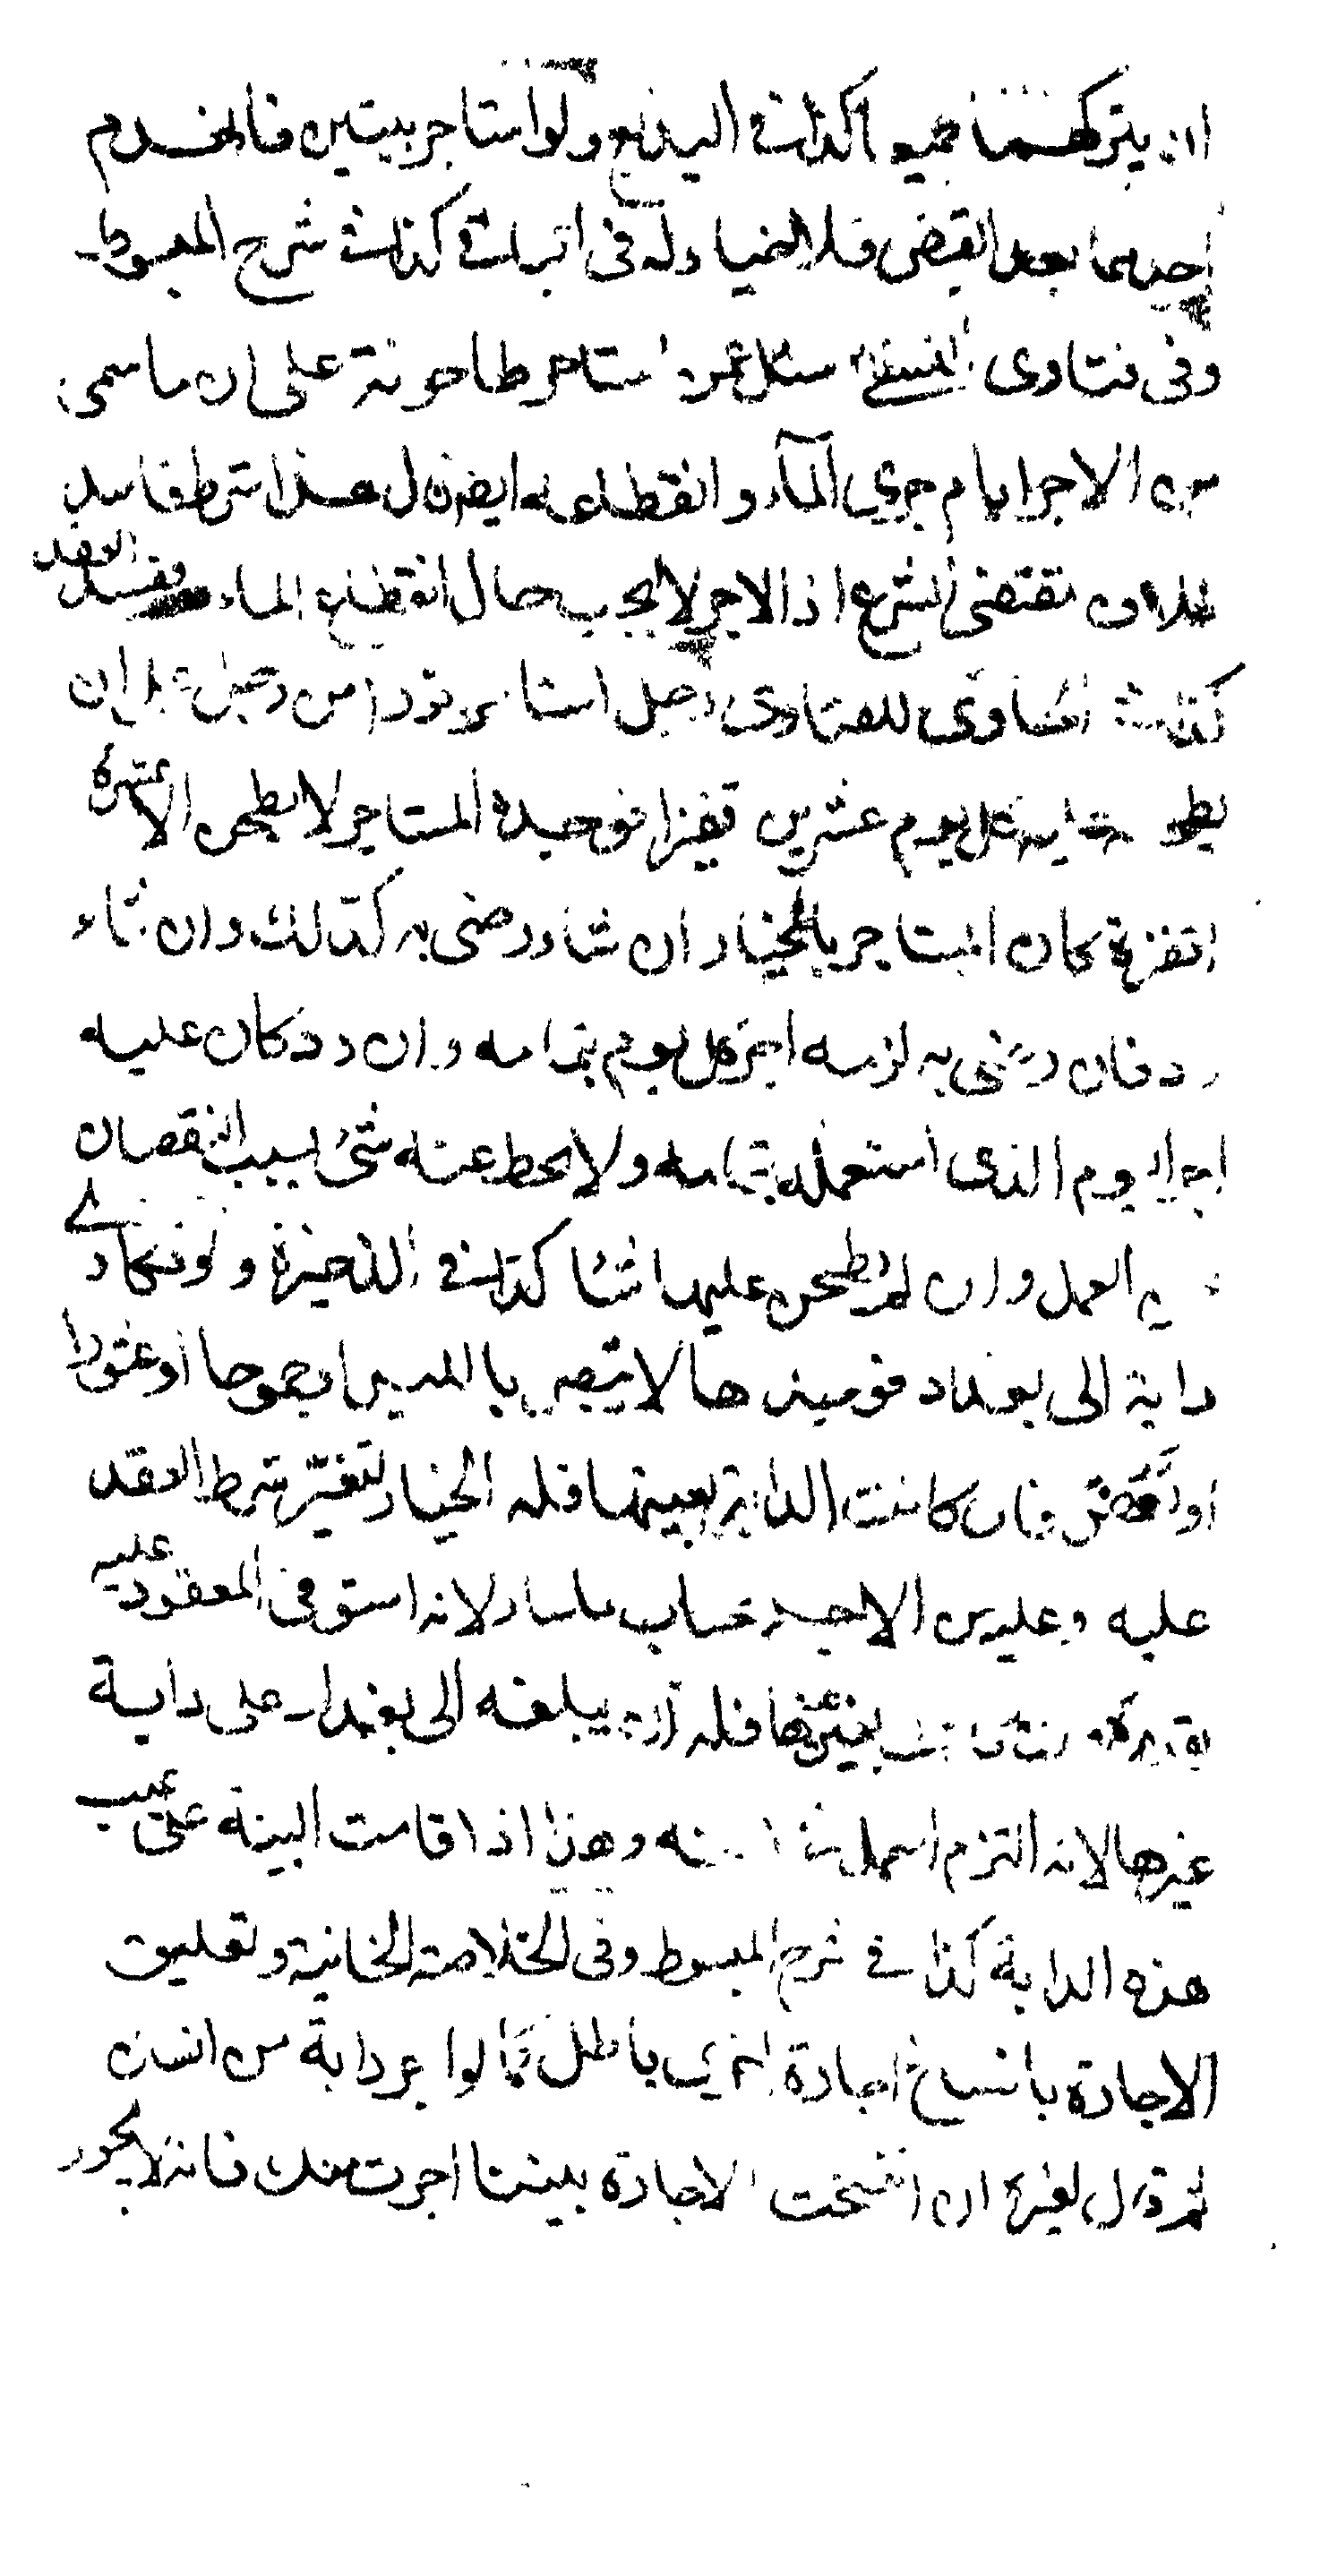 ان يتركهما جميعا كذا في البدائع ولو استاجر بيتين فانهدم
احدهما بعد القبض فلا خيار له في الباقي كذا في شرح المبسوط
وفي فتاوى النسفي سئل عمن استاجر طاحونة على ان ما سمى
من الاجر ايام جري الماء وانقطاعه ايضا قال هذا شرط فاسد
خلاف مقتضى الشرع اذ الاجر لا يجب حال انقطاع الماء ويفسد العقد
كذا في الحاوي للفتاوى رجل استاجر ثورا من رجل على ان
يطحن عليه كل يوم عشرين قفيزا فوجده المستاجر لا يطحن الا عشرة
اقفزة كان المستاجر بالخيار ان شاء رضى به كذلك وان شاء
رد فان رضى به لزمه اجر كل يوم بتمامه وان رد كان عليه
اجر اليوم الذي استعمله بتمامه ولا يحط عنه شئ بسبب النقصان
في العمل وان لم يطحن عليها شئا كذا في الذخيرة ولو تكارى
دابة الى بغداد فوجدها لا تبصر بالليل او جموحا او عثورا
او تعض فان كانت الدابة بعينها فله الخيار لتغير شرط العقد
عليه وعليه من الاجر بحساب ما سار لانه استوفى المعقود عليه
بقدره وان كانت بغير عينها فله ان يبلغه الى بغداد على دابة
غيرها لانه التزم العمل في ذمته وهذا اذا قامت البينة على عيب
هذه الدابة كذا في شرح المبسوط وفي الخلاصة الخانية وتعليق
الاجارة بانفساخ اجارة اخرى باطل كما لو اجر دابة من انسان
ثم قال لغيره ان انفسخت الاجارة بيننا اجرت منك فانه لا يجوز